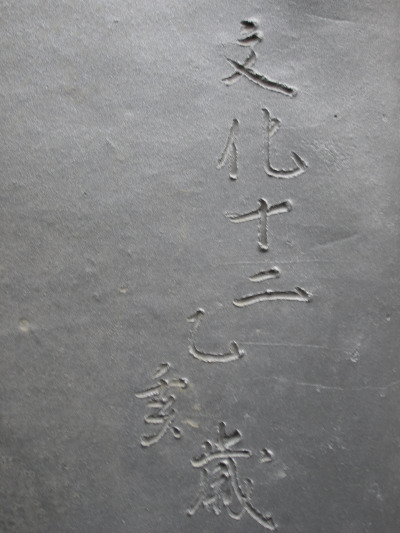 文化十二乙亥歳